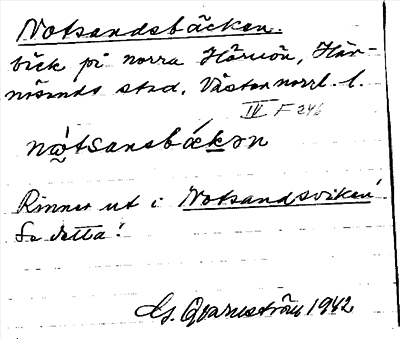 Notsandsbäcken.
bäck på norra Härnön, Här-
nösands stad, Västernorrl. l.
IV F 246
nὼtsansbäckən
Rinner ut i Notsandsviken!
Se detta!
G. Qvarnström 1942